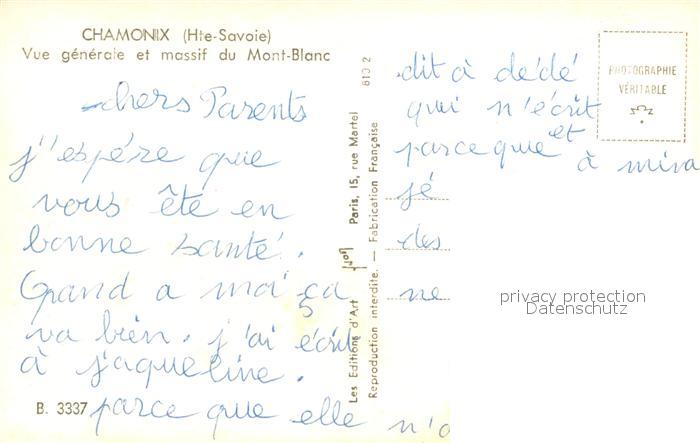 CHAMONIX (Hte-Savoie)
Vue générale et massif du Mont-Blanc
chers Parents
j'espére que
vous ête en
bonne santé.
Quand a moi ça
va bien. j'ai écrit
à jaqueline.
B. 3337
parce que elle n'a
Les Editions d'Art Yvon Paris, 15, rue Martel
Reproduction interdite. — Fabrication Française
810 2
PHOTOGRAPHIE
VÉRITABLE
dit à dédé
qui n'écrit
parce que et à mira
jé
des
ne
privacy protection
Datenschutz